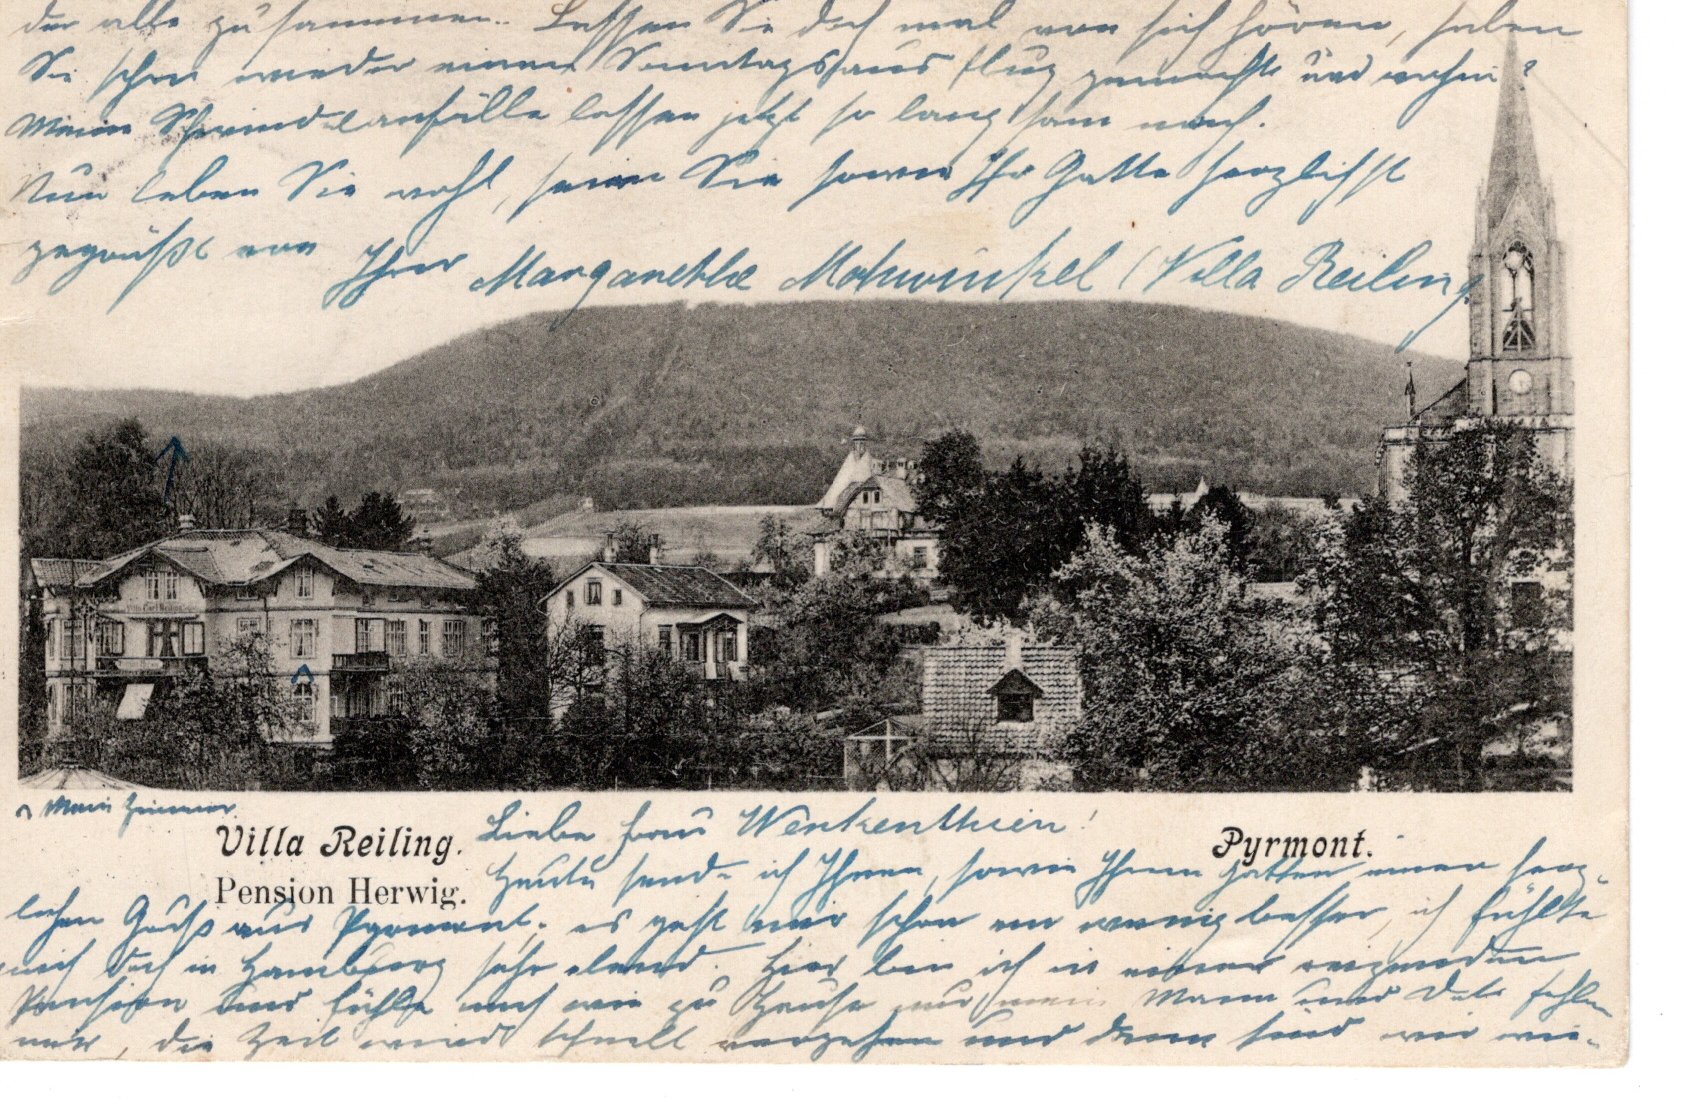 Mein Zimmer.
Villa Reiling.
Pension Herwig.
Pyrmont.
Liebe Frau Wenkenthien!
Heute sende ich Ihnen, sowie Ihrem Gatten einen herz-
lichen Gruß aus Pyrmont. es geht mir schon ein wenig besser, ich fühlte
mich doch in Hamburg sehr elend. Hier bin ich in einer reizenden
Pension und fühle mich wie zu Hause nur mein Mann und fehlen
mir, die Zeit wird schnell vergehen und dann sind wir wie-
der alle zusammen. Lassen Sie doch mal von sich hören, haben
Sie schon wieder einen Sonntagsausflug gemacht und wohin?
Meine Schwindelanfälle lassen jetzt so langsam nach.
Nun leben Sie wohl, seien Sie sowie Ihr Gatte herzlichst
gegrüßt von Ihrer Margarethe Mohwinkel (Villa Reiling